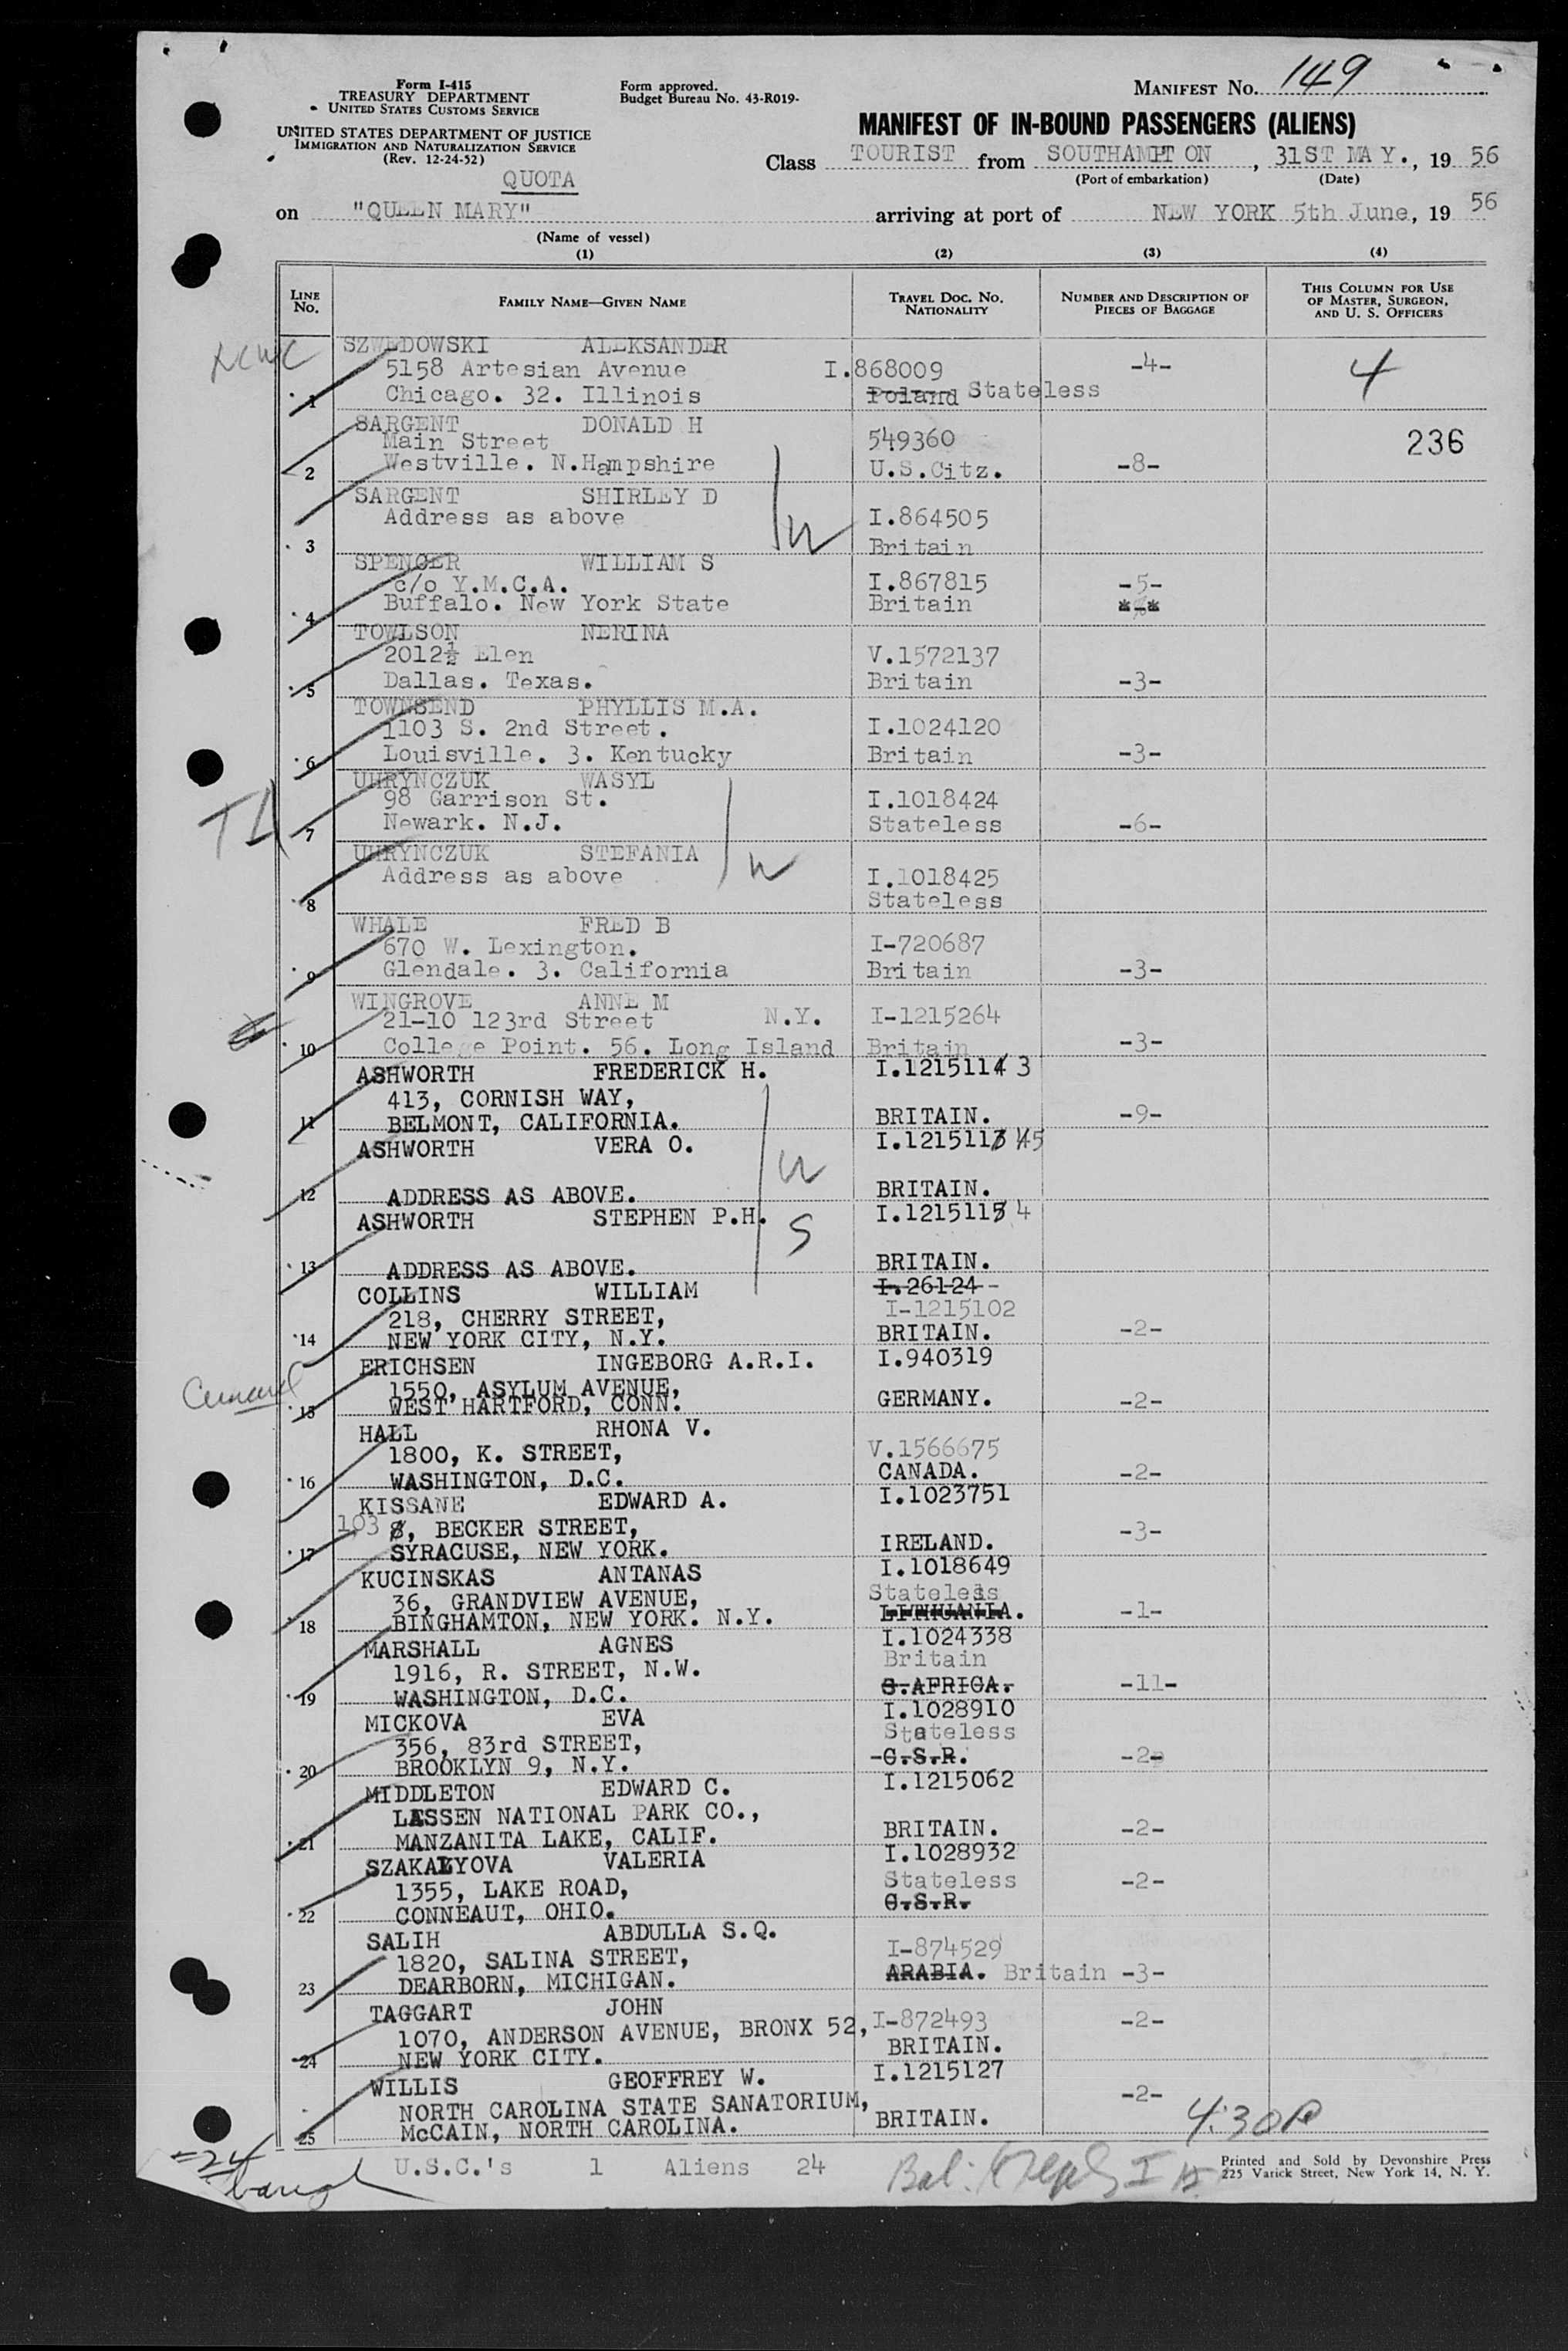 Form I-415
TREASURY DEPARTMENT
UNITED STATES CUSTOMS SERVICE
UNITED STATES DEPARTMENT OF JUSTICE
IMMIGRATION AND NATURALIZATION SERVICE
(Rev. 12-24-52)
Form approved.
Budget Bureau No. 43-R019-
MANIFEST NO. 149
MANIFEST OF IN-BOUND PASSENGERS (ALIENS)
Class TOURIST from SOUTHAMPTON, 31ST MAY., 19 56
(Port of embarkation) (Date)
QUOTA
on "QUEEN MARY" arriving at port of NEW YORK 5th June, 19 56
(Name of vessel)
(1) (2) (3) (4)
LINE NO. FAMILY NAME—GIVEN NAME TRAVEL DOC. NO. NATIONALITY NUMBER AND DESCRIPTION OF PIECES OF BAGGAGE THIS COLUMN FOR USE OF MASTER, SURGEON, AND U. S. OFFICERS
NCWC SZWEDOWSKI ALEKSANDER
5158 Artesian Avenue I.868009 -4- 4
1 Chicago. 32. Illinois Poland Stateless
SARGENT DONALD H
Main Street 549360 236
2 Westville. N.Hampshire U.S.Citz. -8-
SARGENT SHIRLEY D
Address as above I.864505
3 W Britain
SPENCER WILLIAM S
c/o Y.M.C.A. I.867815 -5-
4 Buffalo. New York State Britain
TOWLSON NERINA
2012½ Elen V.1572137
5 Dallas. Texas. Britain -3-
TOWNSEND PHYLLIS M.A.
1103 S. 2nd Street. I.1024120
6 Louisville. 3. Kentucky Britain -3-
UHRYNCZUK WASYL
98 Garrison St. I.1018424
7 Newark. N.J. Stateless -6-
UHRYNCZUK STEFANIA W
Address as above I.1018425
8 Stateless
WHALE FRED B
670 W. Lexington. I-720687
9 Glendale. 3. California Britain -3-
WINGROVE ANNE M
21-10 123rd Street N.Y. I-1215264
10 College Point. 56. Long Island Britain -3-
ASHWORTH FREDERICK H. I.1215114 3
413, CORNISH WAY,
11 BELMONT, CALIFORNIA. BRITAIN. -9-
ASHWORTH VERA O. I.1215113 45
W
12 ADDRESS AS ABOVE. BRITAIN.
ASHWORTH STEPHEN P.H. I.1215115 4
S
13 ADDRESS AS ABOVE. BRITAIN.
COLLINS WILLIAM I.26124
218, CHERRY STREET, I-1215102
14 NEW YORK CITY, N.Y. BRITAIN. -2-
ERICHSEN INGEBORG A.R.I. I.940319
Cunard 1550, ASYLUM AVENUE,
15 WEST HARTFORD, CONN. GERMANY. -2-
HALL RHONA V.
1800, K. STREET, V.1566675
16 WASHINGTON, D.C. CANADA. -2-
KISSANE EDWARD A. I.1023751
103 8, BECKER STREET, -3-
17 SYRACUSE, NEW YORK. IRELAND.
KUCINSKAS ANTANAS I.1018649
36, GRANDVIEW AVENUE, Stateless
18 BINGHAMTON, NEW YORK. N.Y. LITHUANIA. -1-
MARSHALL AGNES I.1024338
1916, R. STREET, N.W. Britain
19 WASHINGTON, D.C. S.AFRICA. -11-
MICKOVA EVA I.1028910
356, 83rd STREET, Stateless
20 BROOKLYN 9, N.Y. C.S.R. -2-
MIDDLETON EDWARD C. I.1215062
LASSEN NATIONAL PARK CO.,
21 MANZANITA LAKE, CALIF. BRITAIN. -2-
SZAKALYOVA VALERIA I.1028932
1355, LAKE ROAD, Stateless -2-
22 CONNEAUT, OHIO. C.S.R.
SALIH ABDULLA S.Q.
1820, SALINA STREET, I-874529
23 DEARBORN, MICHIGAN. ARABIA. Britain -3-
TAGGART JOHN
1070, ANDERSON AVENUE, BRONX 52, I-872493 -2-
24 NEW YORK CITY. BRITAIN.
WILLIS GEOFFREY W. I.1215127
NORTH CAROLINA STATE SANATORIUM, -2-
25 McCAIN, NORTH CAROLINA. BRITAIN. 4:30P
=24
U.S.C.'s 1 Aliens 24
Printed and Sold by Devonshire Press
225 Varick Street, New York 14, N. Y.